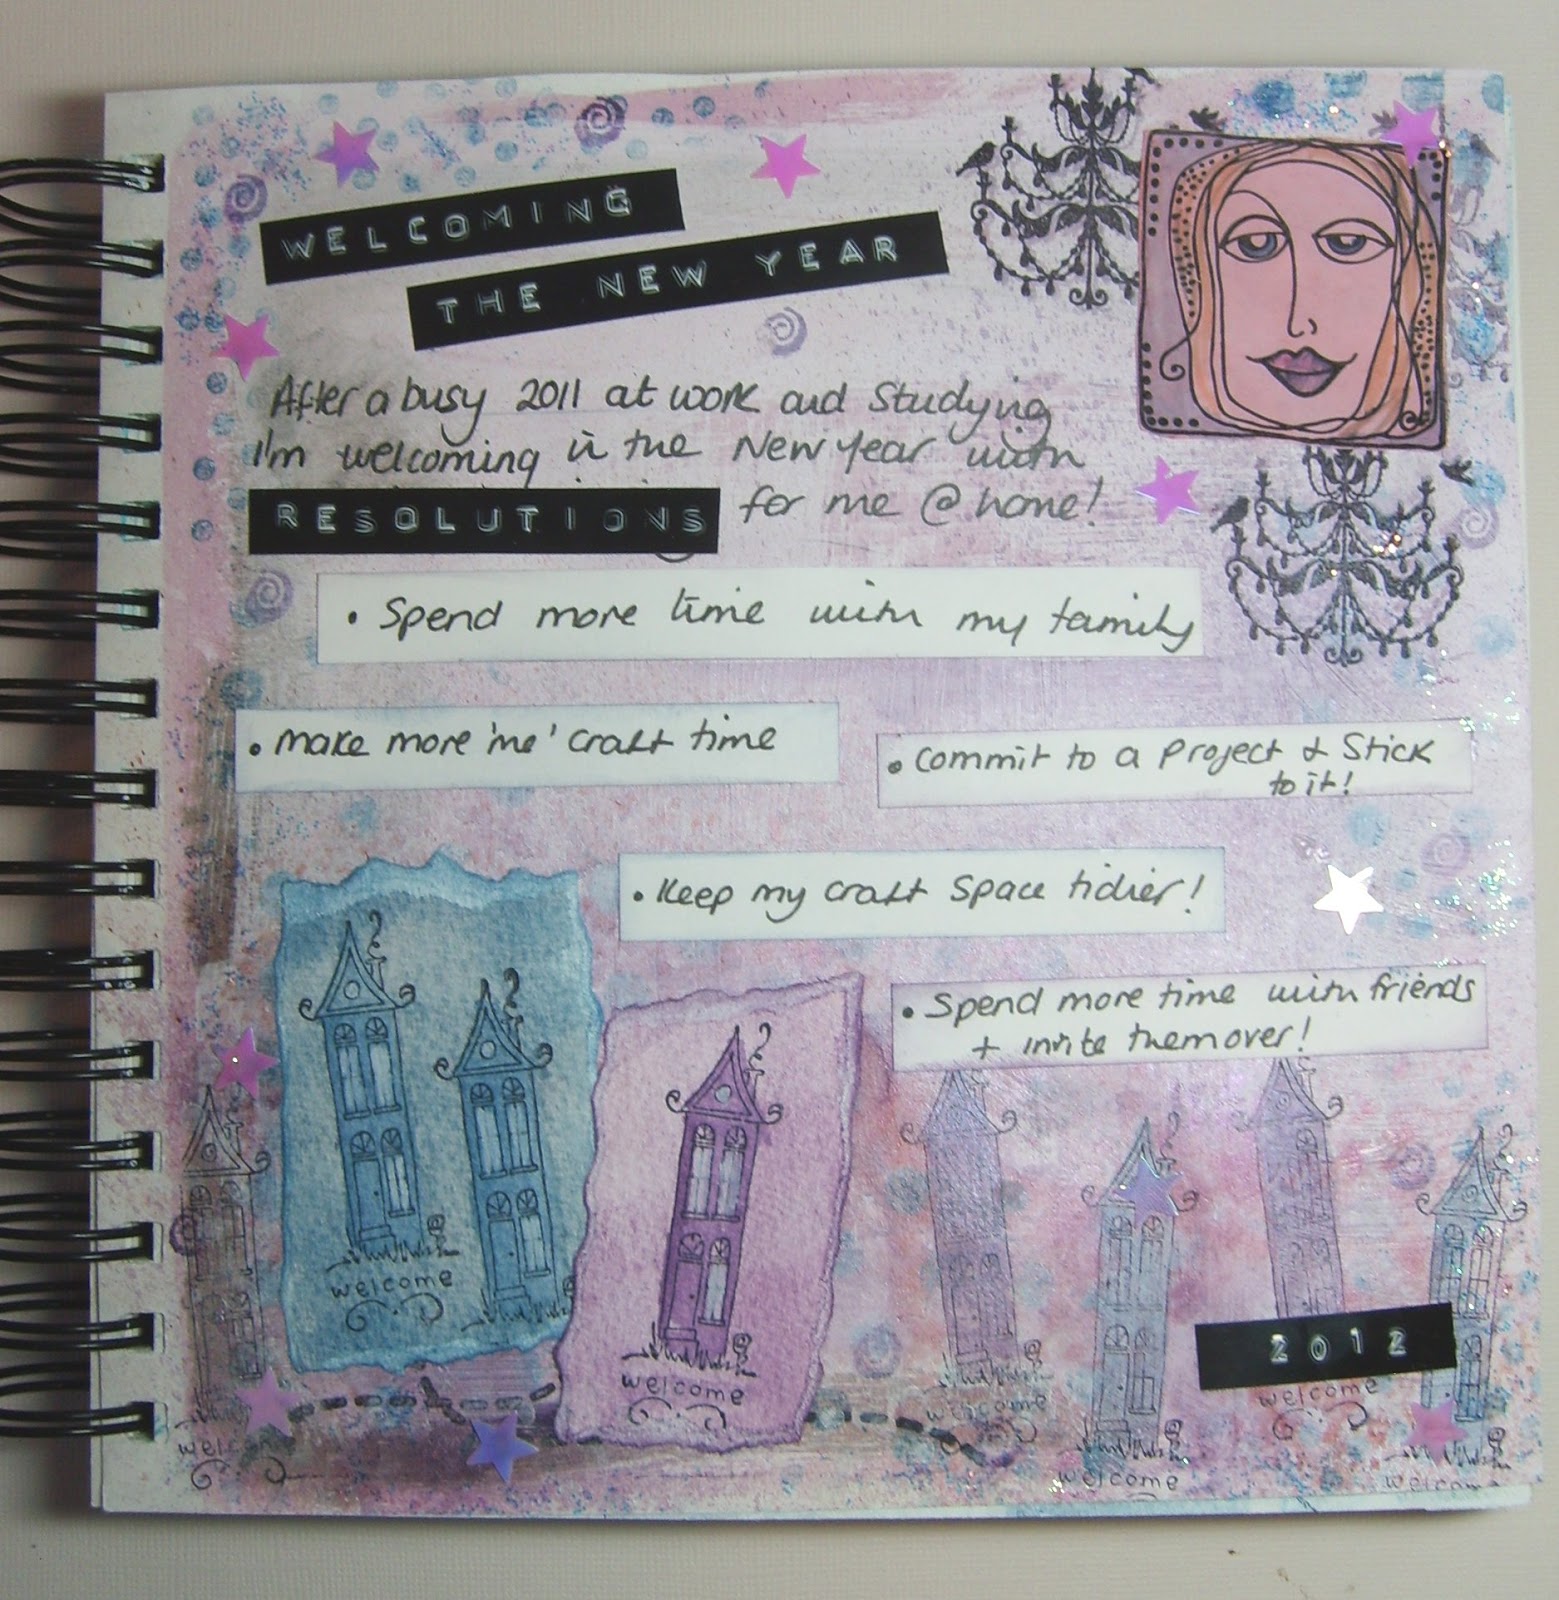 WELCOMING
THE NEW YEAR
After a busy 2011 at work and studying
I'm welcoming in the New Year with
RESOLUTIONS for me @ home!
• Spend more time with my family
• make more 'me' craft time
• commit to a project + stick
to it!
• Keep my craft space tidier!
• Spend more time with friends
+ invite them over!
welcome
welcome
2012
welcome
welcome
welcome
welcome
welcome